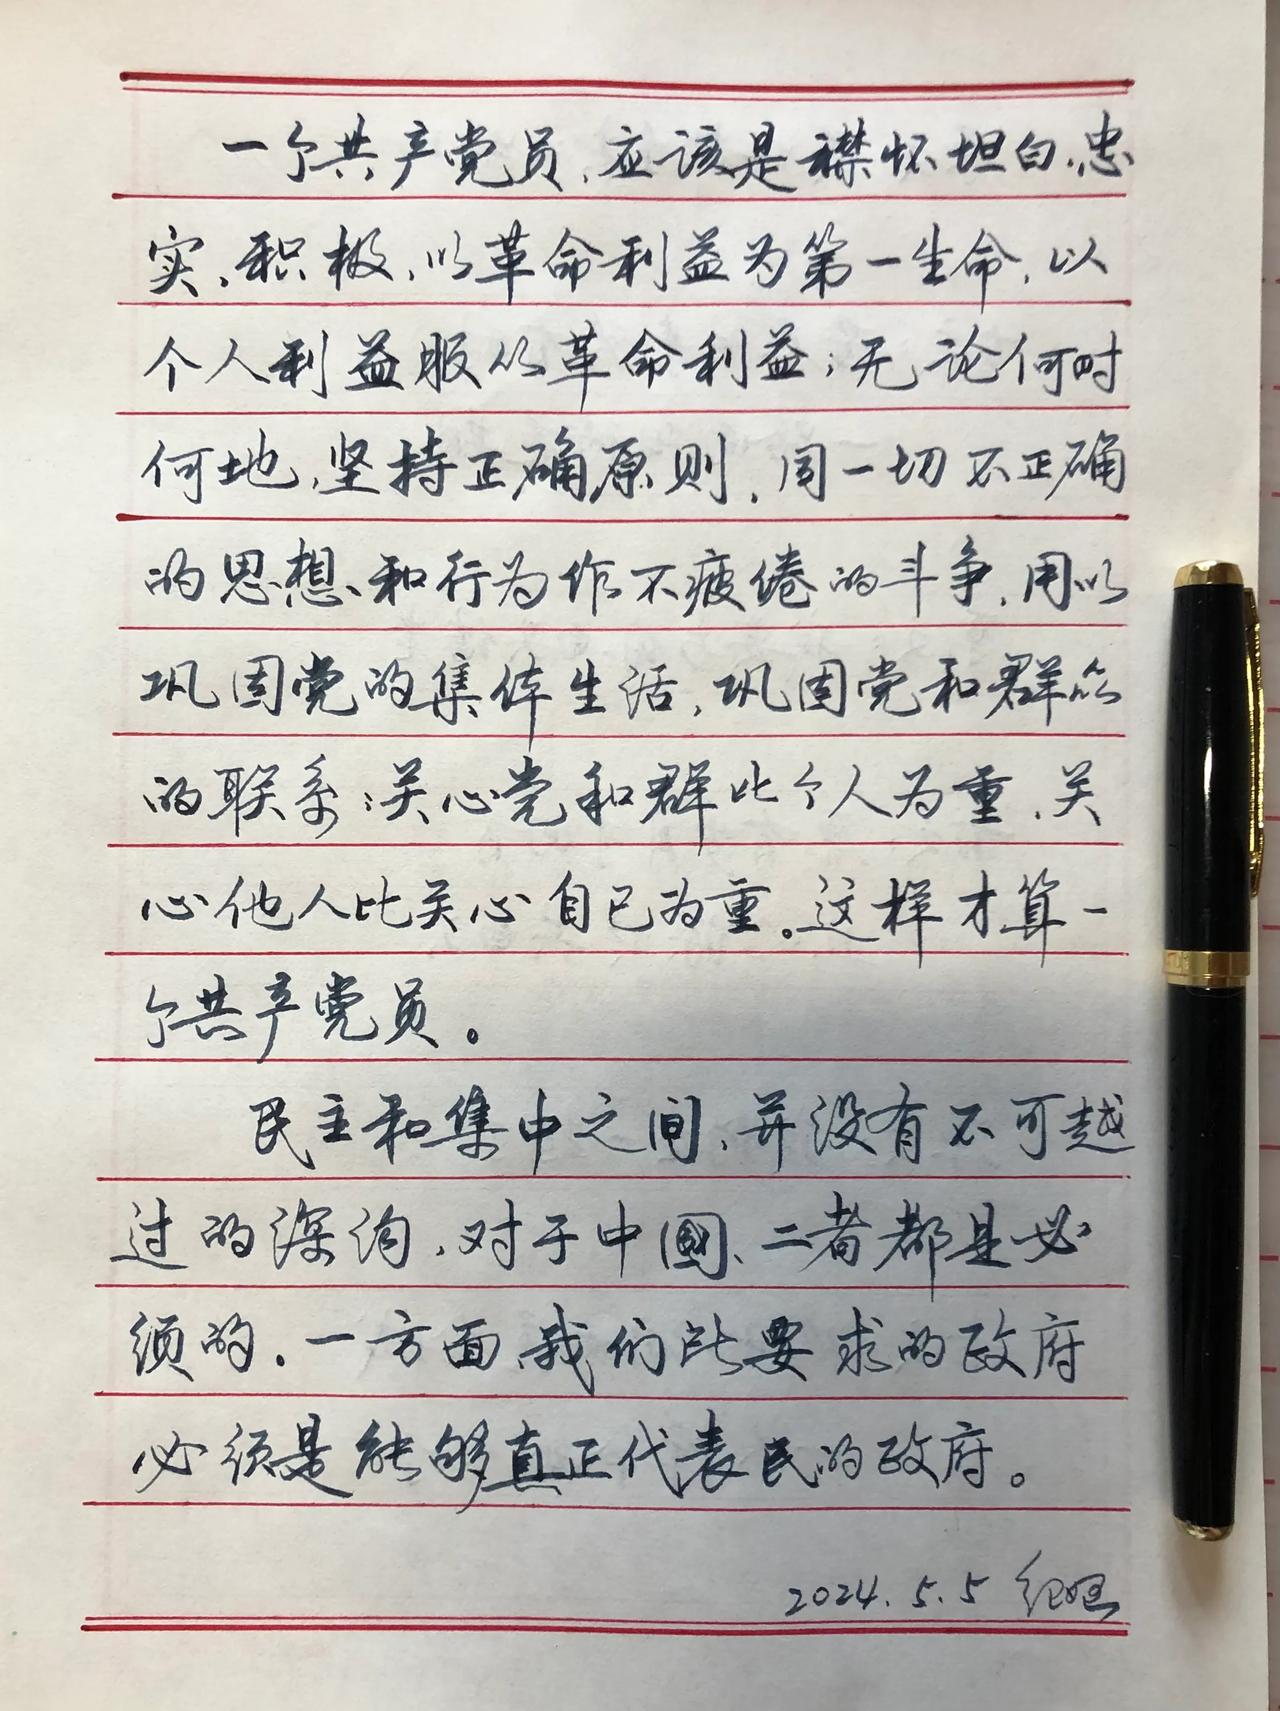 一个共产党员,应该是襟怀坦白,忠
实,积极,以革命利益为第一生命,以
个人利益服从革命利益;无论何时
何地,坚持正确原则,同一切不正确
的思想和行为作不疲倦的斗争,用以
巩固党的集体生活,巩固党和群众
的联系;关心党和群比个人为重,关
心他人比关心自己为重。这样才算一
个共产党员。
民主和集中之间,并没有不可越
过的深沟,对于中國,二者都是必
须的。一方面,我们所要求的政府
必须是能够真正代表民的政府。
2024.5.5